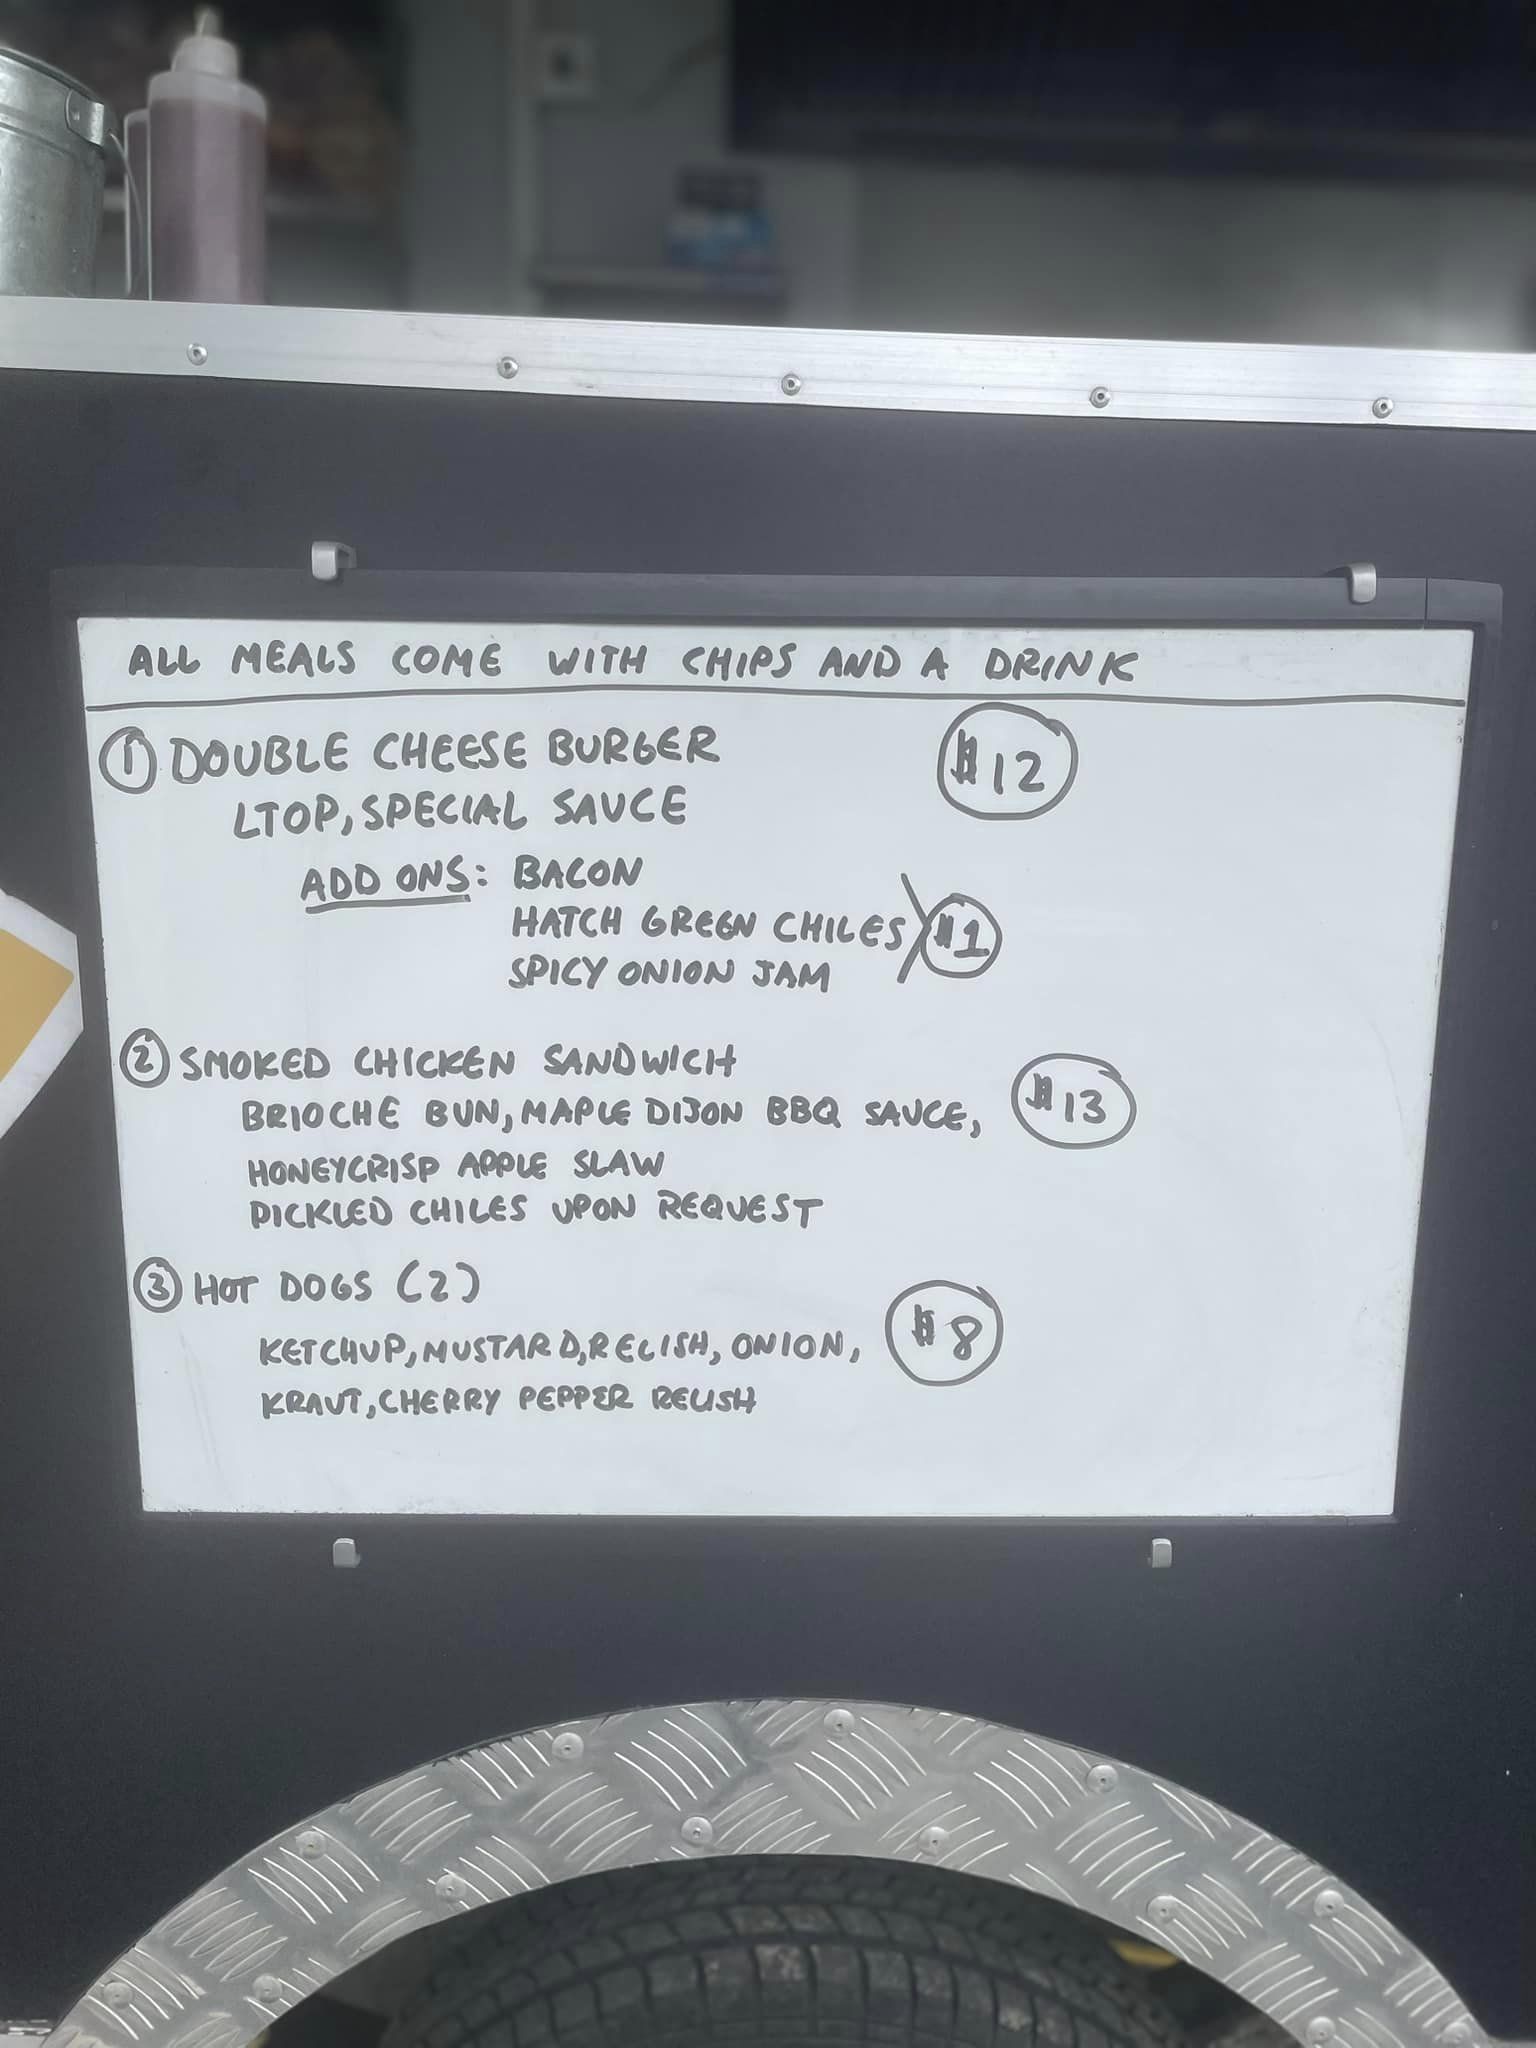 ALL MEALS COME WITH CHIPS AND A DRINK
① DOUBLE CHEESE BURGER $12
LTOP, SPECIAL SAUCE
ADD ONS: BACON
HATCH GREEN CHILES $1
SPICY ONION JAM
② SMOKED CHICKEN SANDWICH
BRIOCHE BUN, MAPLE DIJON BBQ SAUCE, $13
HONEYCRISP APPLE SLAW
PICKLED CHILES UPON REQUEST
③ HOT DOGS (2)
KETCHUP, MUSTARD, RELISH, ONION, $8
KRAUT, CHERRY PEPPER RELISH